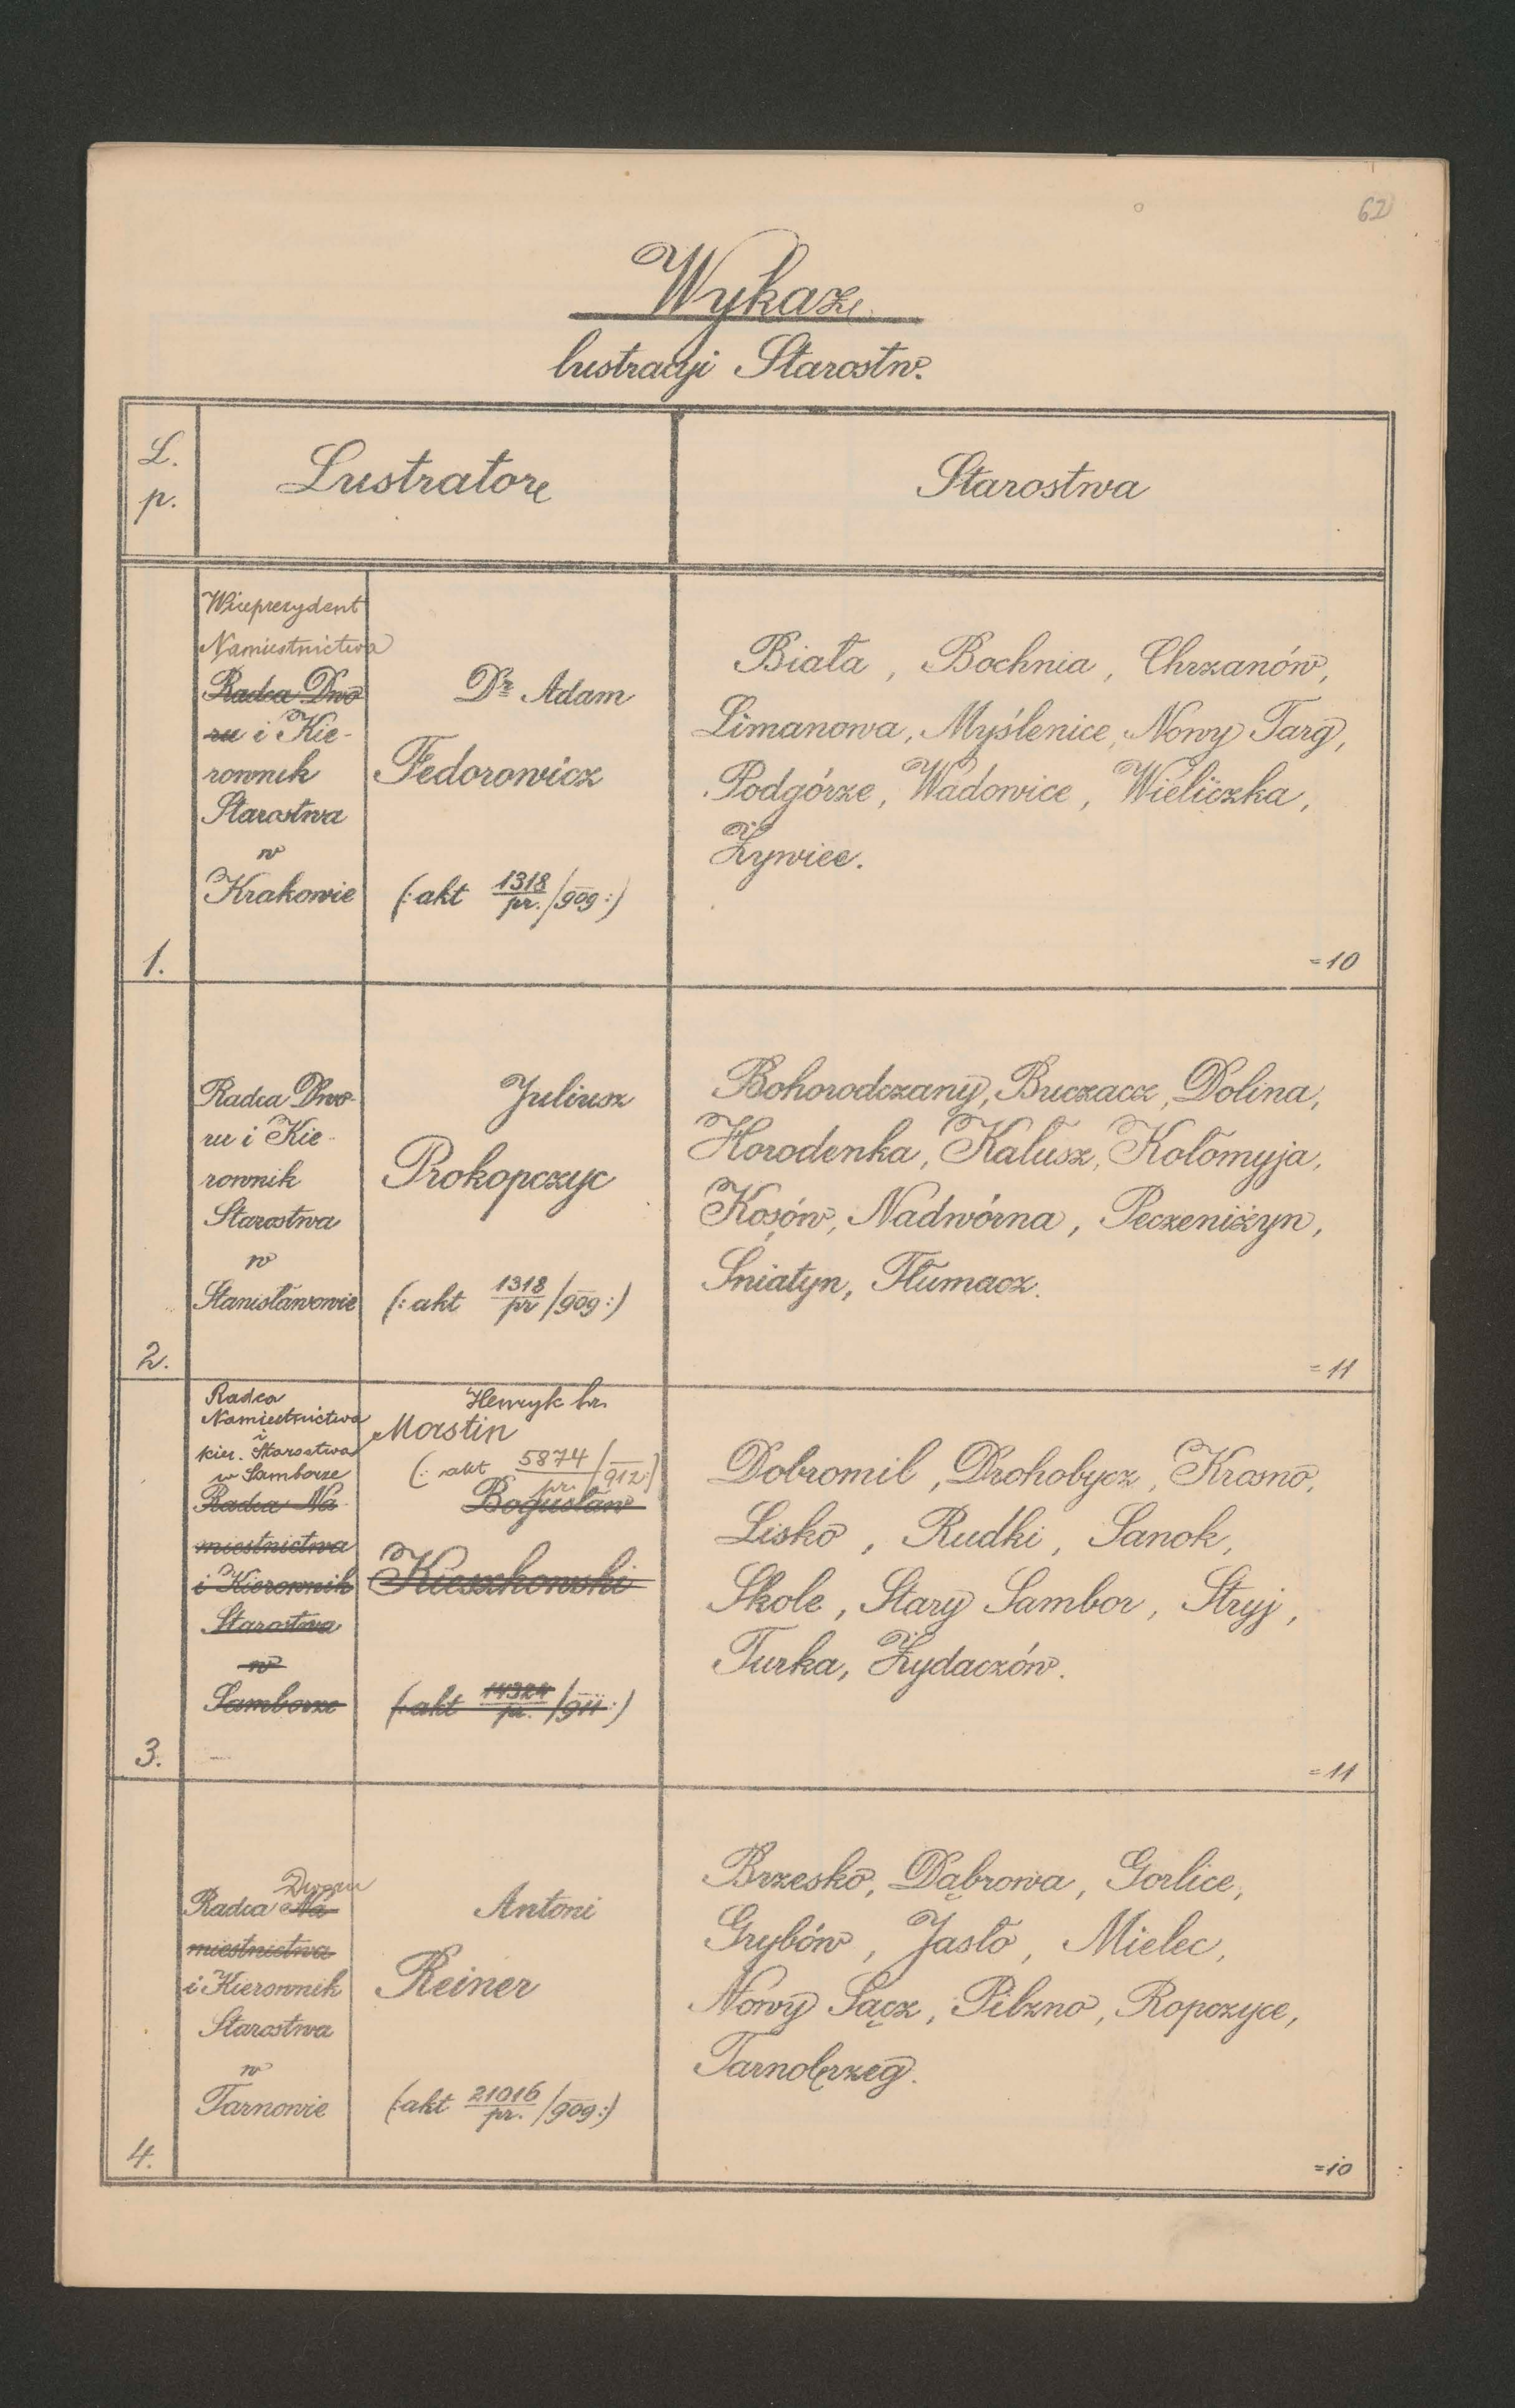 62
Wykaz
lustracyi Starostw.
L.
p.
Lustratore
Starostwa
Wiceprezydent
Namiestnictwa
Radca Dwo
ru i Kie-
rownik
Starostwa
w
Krakowie
Dr Adam
Fedorowicz
(: akt 1318/pr. /909 :)
Biała, Bochnia, Chrzanów,
Limanowa, Myślenice, Nowy Targ,
Podgórze, Wadowice, Wieliczka,
Żywiec.
1.
=10
Radca Dwo-
ru i Kie-
rownik
Starostwa
w
Stanisławowie
Juliusz
Prokopczyc
(: akt 1318/pr /909 :)
Bohorodczany, Buczacz, Dolina,
Horodenka, Kałusz, Kołomyja,
Kosów, Nadwórna, Peczeniżyn,
Sniatyn, Tłumacz.
2.
=11
Radca
Namiestnictwa
i
kier. Starostwa
w Samborze
Radca Na
miestnictwa
i Kierownik
Starostwa
w
Samborze
Henryk hr.
Morstin
(: akt 5874/pr. /912 :)
Bogusław
Kieszkowski
(: akt 14324/pr. /911 :)
Dobromil, Drohobycz, Krosno,
Lisko, Rudki, Sanok,
Skole, Stary Sambor, Stryj,
Turka, Żydaczów.
3.
=11
Dworu
Radca Na
miestnictwa
i Kierownik
Starostwa
w
Tarnowie
Antoni
Reiner
(: akt 21016/pr. /909 :)
Brzesko, Dąbrowa, Gorlice,
Grybów, Jasło, Mielec,
Nowy Sącz, Pilzno, Ropczyce,
Tarnobrzeg.
4.
=10